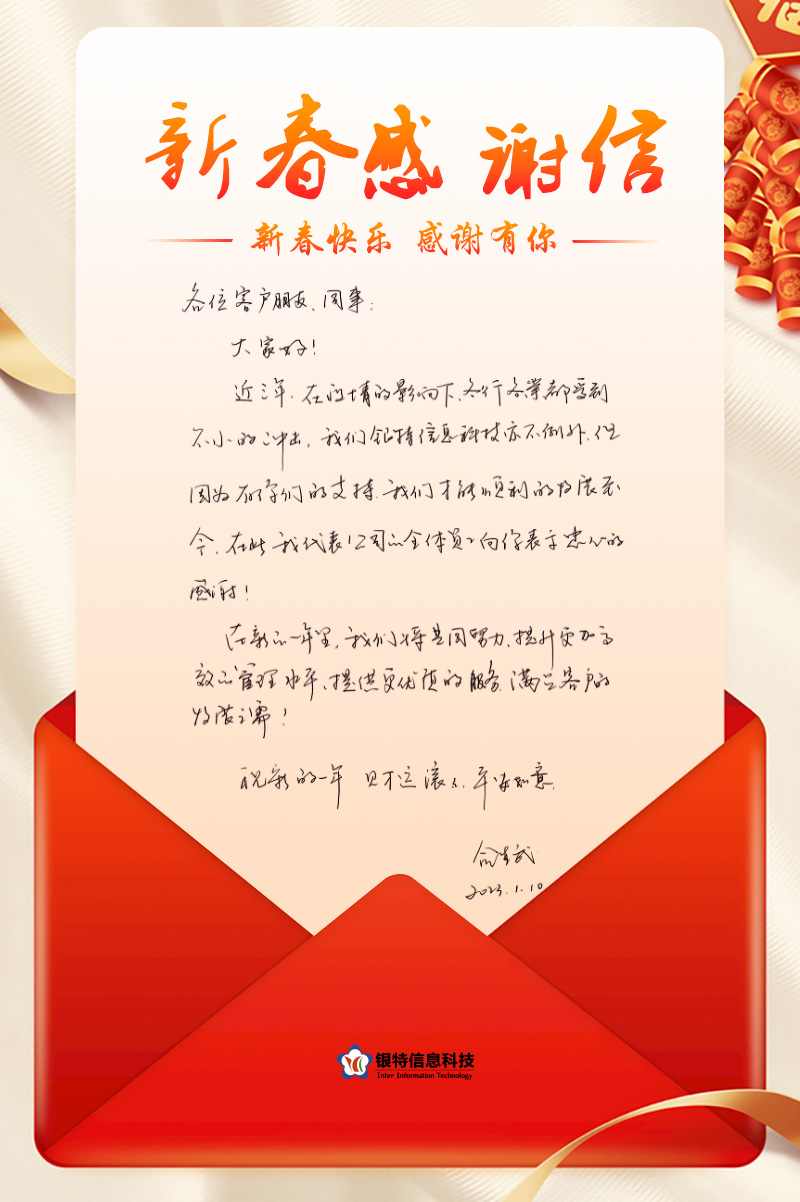 新春感谢信
新春快乐 感谢有你
各位客户朋友、同事：
大家好！
近三年，在疫情的影响下，各行各业都受到
不小的冲击，我们银特信息科技亦不例外，但
因为有你们的支持，我们才能顺利的发展至
今，在此我代表公司的全体员工向你表示衷心的
感谢！
在新的一年里，我们将共同努力，提升更加高
效的管理水平、提供更优质的服务，满足客户的
发展之需！
祝新的一年 财运滚滚、平安如意。
2023.1.10
银特信息科技
Inter Information Technology